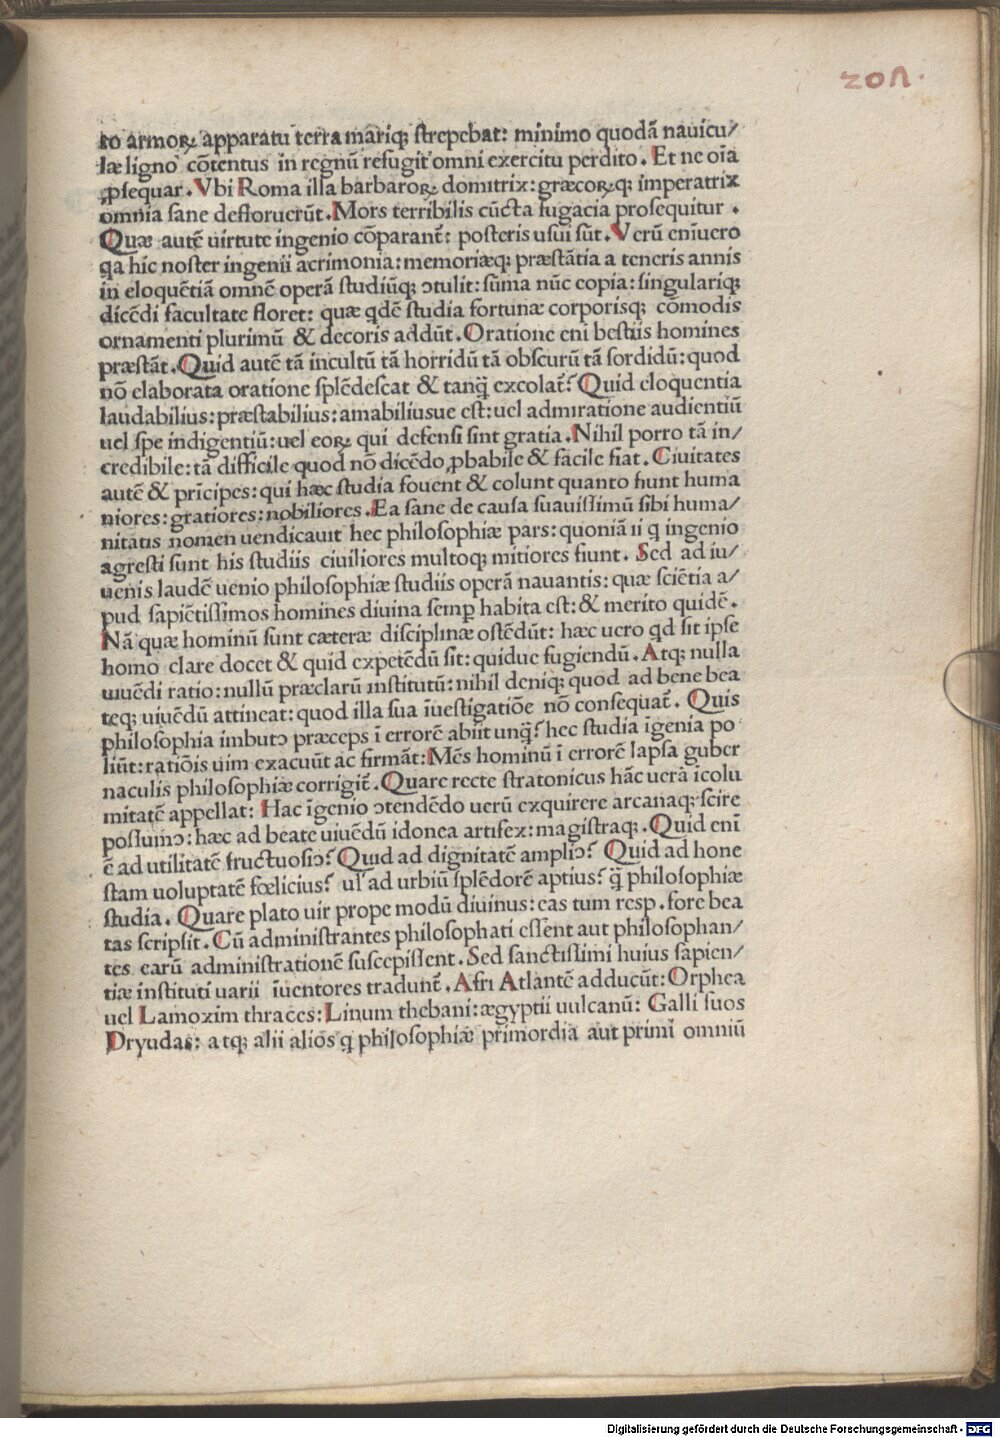 201.
to armoꝝ apparatu terra mariqꝫ ſtrepebat: minimo quodã nauicu/
læ ligno cõtentus in regnũ refugit omni exercitu perdito. Et ne oĩa
ꝓſequar. Vbi Roma illa barbaroꝝ domitrix: græcoꝝqꝫ imperatrix
omnia ſane defloruerũt. Mors terribilis cũcta fugacia proſequitur.
Quæ autẽ uirtute ingenio cõparant̃: poſteris uſui ſũt. Verũ enĩuero
qa hic noſter ingenii acrimonia: memoriæqꝫ præſtãtia a teneris annis
in eloquẽtiã omnẽ operã ſtudiũqꝫ ↄtulit: ſũma nũc copia: ſingulariqꝫ
dicẽdi facultate floret: quæ qdẽ ſtudia fortunæ corporisqꝫ cõmodis
ornamenti plurimũ & decoris addũt. Oratione eni beſtiis homines
præſtãt. Quid autẽ tã incultũ tã horridũ tã obſcurũ tã ſordidũ: quod
nõ elaborata oratione ſplẽdeſcat & tanq̃ excolat̃? Quid eloquentia
laudabilius: præſtabilius: amabiliusue eſt: uel admiratione audientiũ
uel ſpe indigentiũ: uel eoꝝ qui defenſi ſint gratia. Nihil porro tã in/
credibile: tã difficile quod nõ dicẽdo ꝓbabile & facile fiat. Ciuitates
autẽ & prĩcipes: qui hæc ſtudia fouent & colunt quanto fiunt huma
niores: gratiores: nobiliores. Ea ſane de cauſa ſuauiſſimũ ſibi huma/
nitatis nomen uendicauit hec philoſophiæ pars: quoniã ii q ingenio
agreſti ſunt his ſtudiis ciuiliores multoqꝫ mitiores fiunt. Sed ad iu/
uenis laudẽ uenio philoſophiæ ſtudiis operã nauantis: quæ ſciẽtia a/
pud ſapiẽtiſſimos homines diuina ſemꝑ habita eſt: & merito quidẽ.
Nã quæ hominũ ſunt cæteræ diſciplinæ oſtẽdũt: hæc uero qd ſit ipſe
homo clare docet & quid expetẽdũ ſit: quidue fugiendũ. Atqꝫ nulla
uiuẽdi ratio: nullũ præclarũ inſtitutũ: nihil deniqꝫ quod ad bene bea
teqꝫ uiuẽdũ attineat: quod illa ſua ĩueſtigatiõe nõ conſequat̃. Quis
philoſophia imbutꝰ præceps ĩ errorẽ abiit unq̃? hec ſtudia ĩgenia po
liũt: ratiõis uim exacuũt ac firmãt: Mẽs hominũ ĩ errorẽ lapſa guber
naculis philoſophiæ corrigit̃. Quare recte ſtratonicus hãc uerã ĩcolu
mitatẽ appellat: Hac ĩgenio ↄtendẽdo uerũ exquirere arcanaqꝫ ſcire
poſſumꝰ: hæc ad beate uiuẽdũ idonea artifex: magiſtraqꝫ. Quid enĩ
ẽ ad utilitatẽ fructuoſiꝰ? Quid ad dignitatẽ ampliꝰ? Quid ad hone
ſtam uoluptatẽ fœlicius? ul' ad urbiũ ſplẽdorẽ aptius? q̃ philoſophiæ
ſtudia. Quare plato uir prope modũ diuinus: eas tum reſp. fore bea
tas ſcripſit. Cũ adminiſtrantes philoſophati eſſent aut philoſophan/
tes earũ adminiſtrationẽ ſuſcepiſſent. Sed ſanctiſſimi huius ſapien/
tiæ inſtituti uarii ĩuentores tradunt̃. Afri Atlantẽ adducũt: Orphea
uel Lamoxim thraces: Linum thebani: ægyptii uulcanũ: Galli ſuos
Dryudas: atqꝫ alii alios q philoſophiæ primordia aut primi omniũ
Digitalisierung gefördert durch die Deutsche Forschungsgemeinschaft - DFG